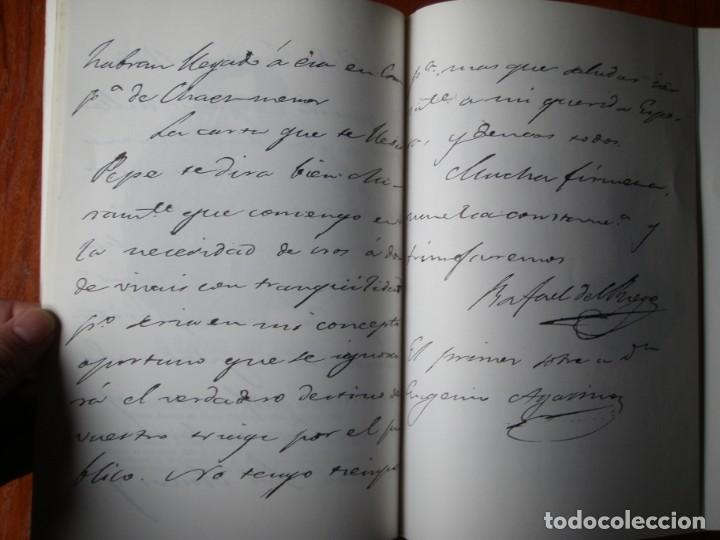 habran llegado á esa en Com
pª de Chaez menor
La carta que te lleva
Pepe te dira bien cla-
ramte que convengo en
la necesidad de iros á donde
de vivais con tranquilidad
pº seria en mi concepto
oportuno que se ignora
rá el verdadero destino de
vuestro viage por el pu
blico. No tengo tiempo
pª. mas que saludar
a mi querida Espo
sa, y demas todos.
Mucha firmeza,
mucha constancª y
triunfaremos
Rafael del Riego
El primer sobre a Dn
Eugenio
todocoleccion.net